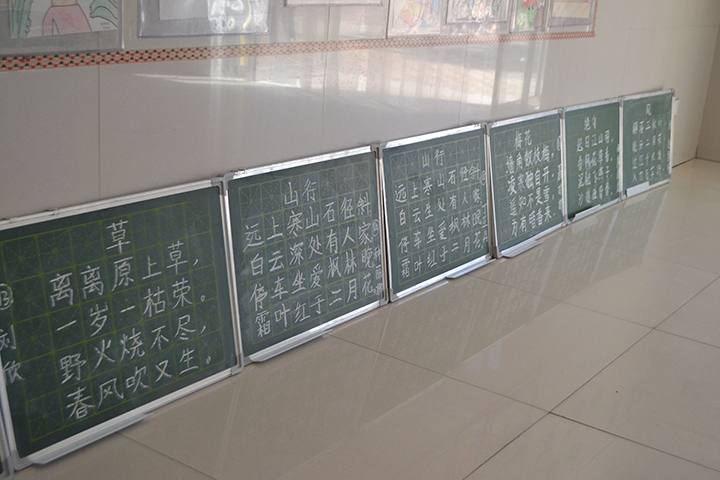 草
离离原上草，
一岁一枯荣。
野火烧不尽，
春风吹又生。
⑬
刘欣
山行
远上寒山石径斜
白云深处有人家
停车坐爱枫林晚
霜叶红于二月花
山行
远上寒山石径斜
白云生处有人家
停车坐爱枫林晚
霜叶红于二月花
梅花
墙角数枝梅
凌寒独自开
遥知不是雪
为有暗香来
绝句
迟日江山丽
风